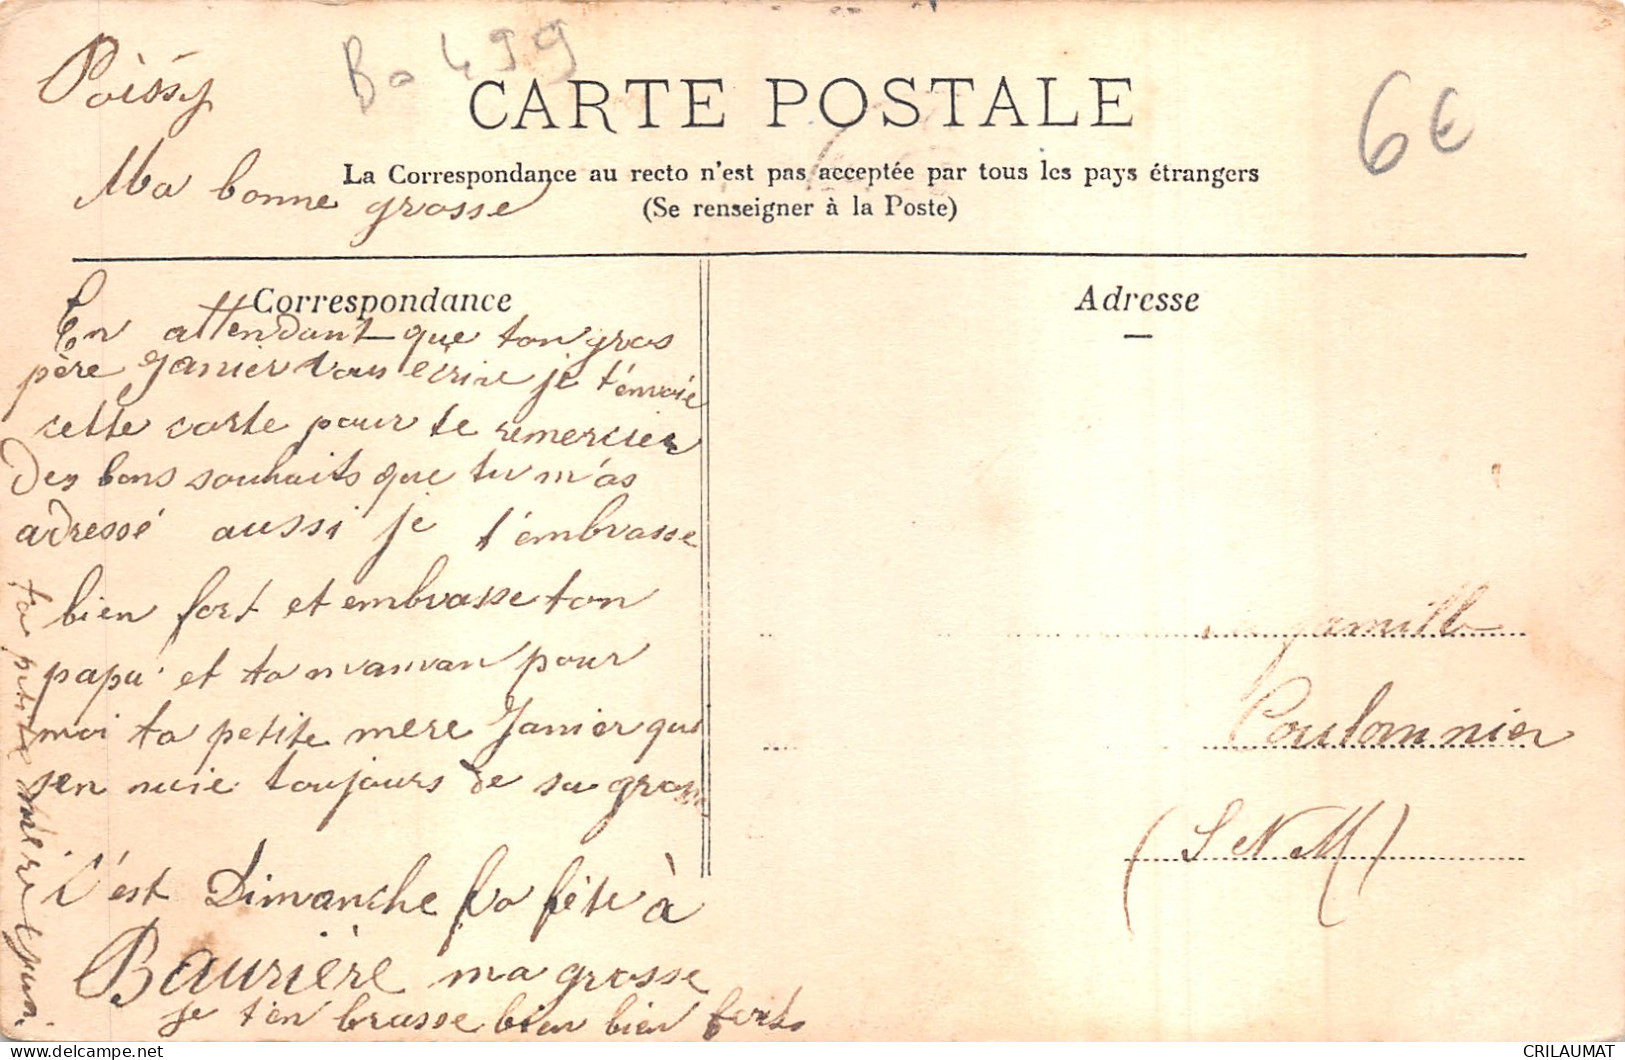 Poissy
Bo 499
CARTE POSTALE
6€
La Correspondance au recto n'est pas acceptée par tous les pays étrangers
(Se renseigner à la Poste)
Ma bonne grosse
Correspondance
Adresse
En attendant que ton gros
père Janier vous écrire je t'envoie
cette carte pour te remercier
des bons souhaits que tu m'as
adressé aussi je t'embrasse
bien fort et embrasse ton
papa et ta maman pour
moi ta petite mère Janier qui
s'en nuie toujours de sa grosse
c'est Dimanche la fête à
Baurière ma grosse
je t'en brasse bien bien fort
ta petite mère
famille
Coulonnier
(S N M)
CRILAUMAT